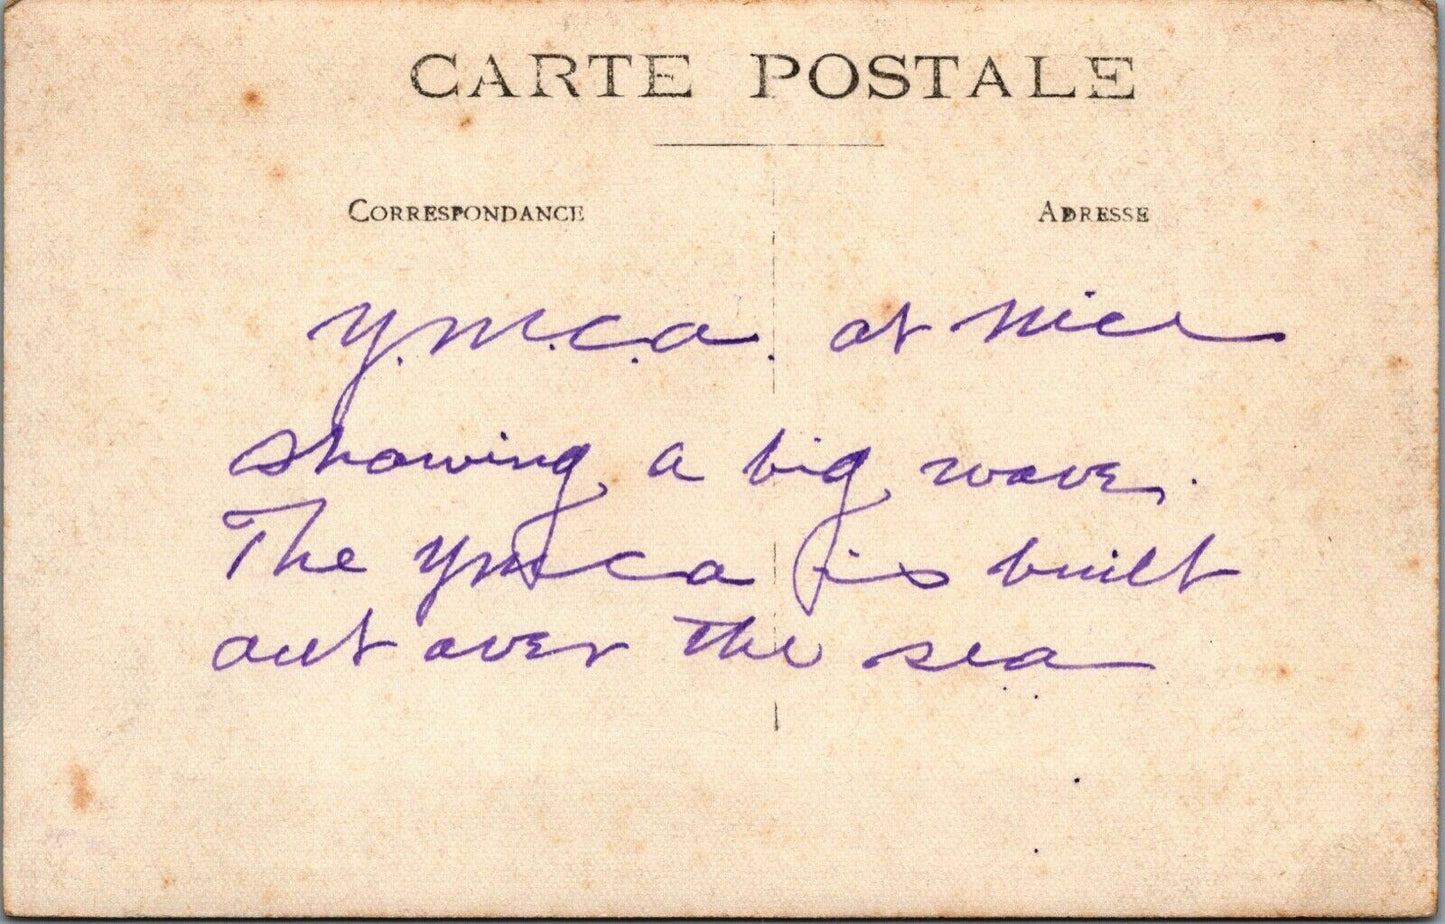 CARTE POSTALE
CORRESPONDANCE
ADRESSE
Y.M.C.A. at Nice
showing a big wave.
The YMCA is built
out over the sea